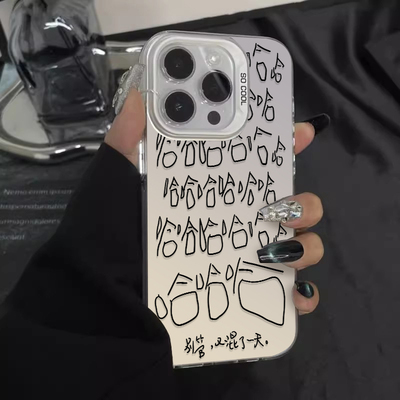 SO COOL
哈哈
哈哈
哈哈哈哈哈哈
哈哈哈哈哈哈
哈哈哈哈哈
哈哈哈
别管,又混了一天。